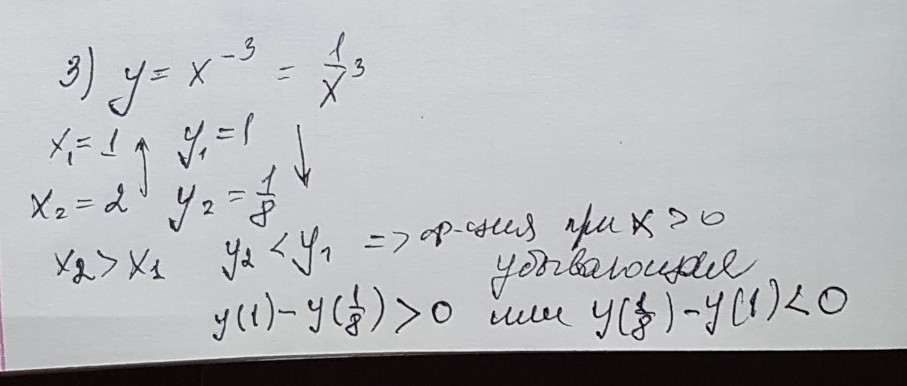 3) y = x⁻³ = 1/x³
x₁ = 1 ↑ y₁ = 1 ↓
x₂ = 2 y₂ = 1/8
x₂ > x₁ y₂ < y₁ => ф-ция при x > 0
убывающая
y(1) - y(1/8) > 0 или y(1/8) - y(1) < 0